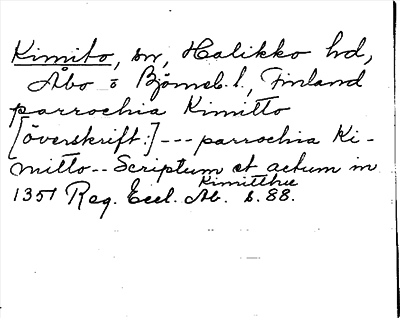 Kimito, sn, Halikko hd,
Åbo o Björneb. l., Finland
parrochia Kimitto
[överskrift:] --- parrochia Ki-
mitto -- Scriptum et actum in
Kimitthie
1351 Reg. Eccl. Ab. s. 88.